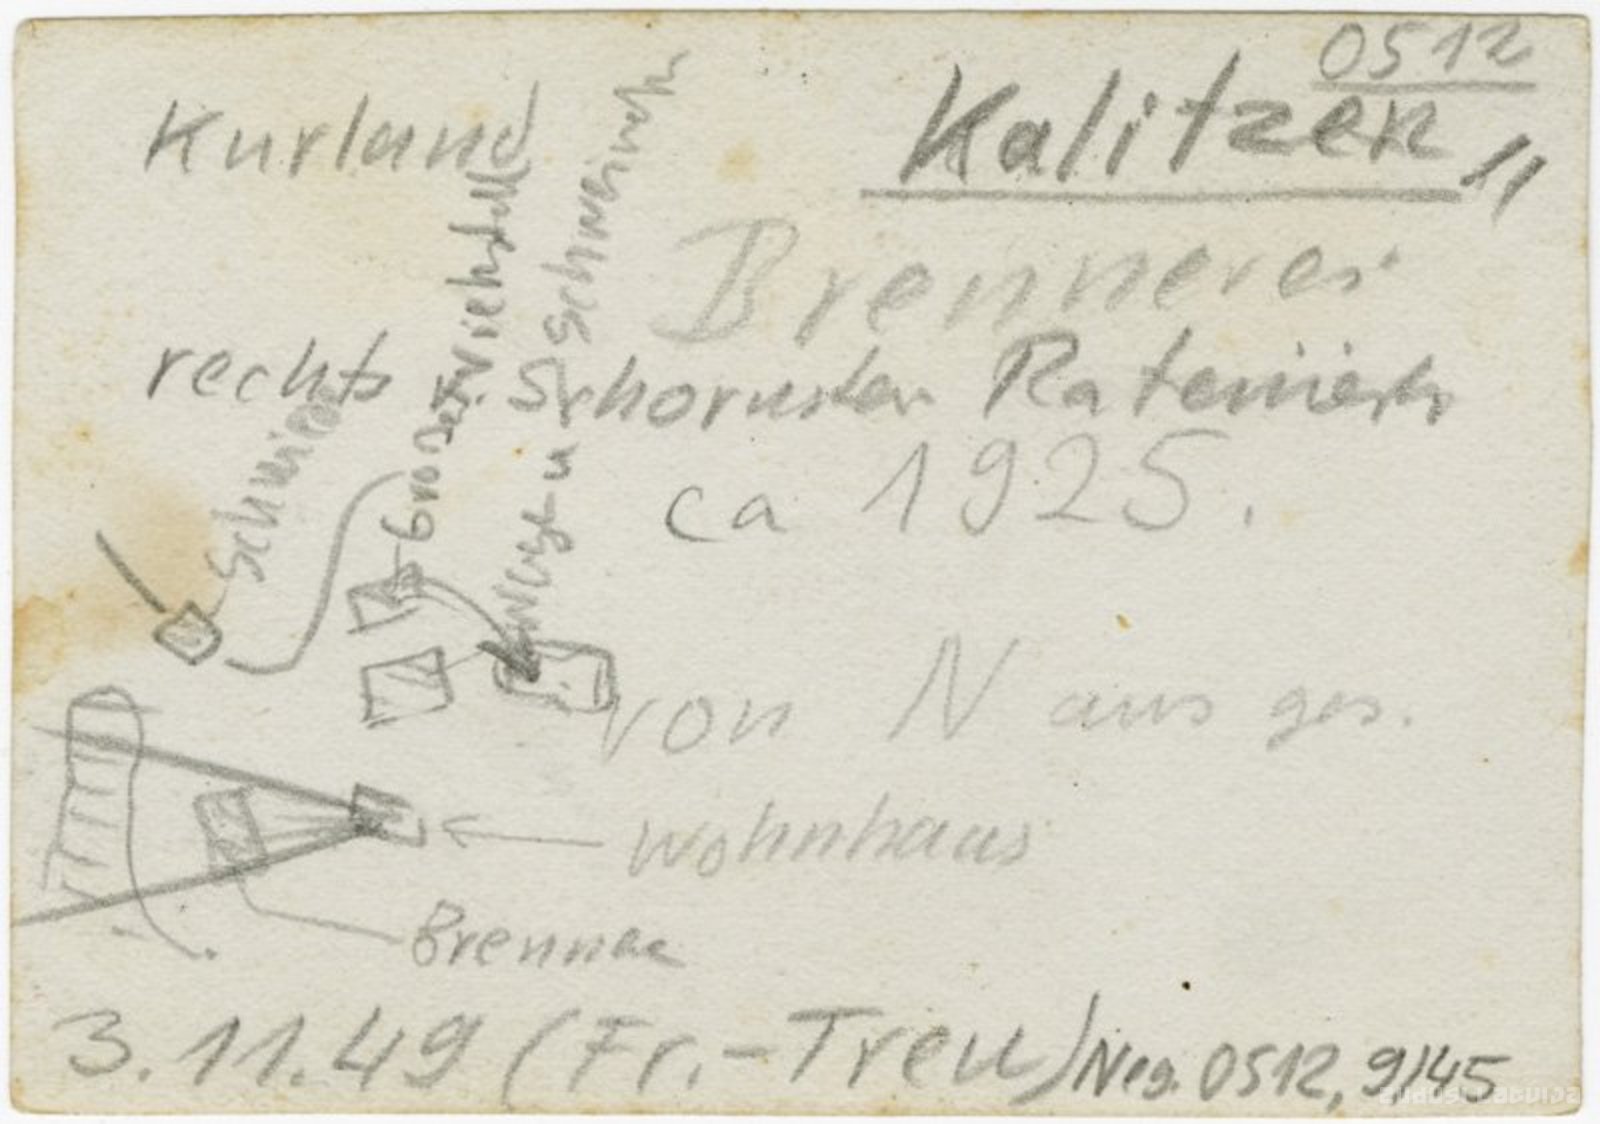 0512
Kurland
Kalitzen "
Brennerei
rechts Schornstein
ca 1925.
Schmiede
Grosser Viehstall
Wagen u
von N aus ges.
Wohnhaus
Brennerei
3.11.49 (Fr.-Treu) Neg. 0512, 9/45
zudusi latvija